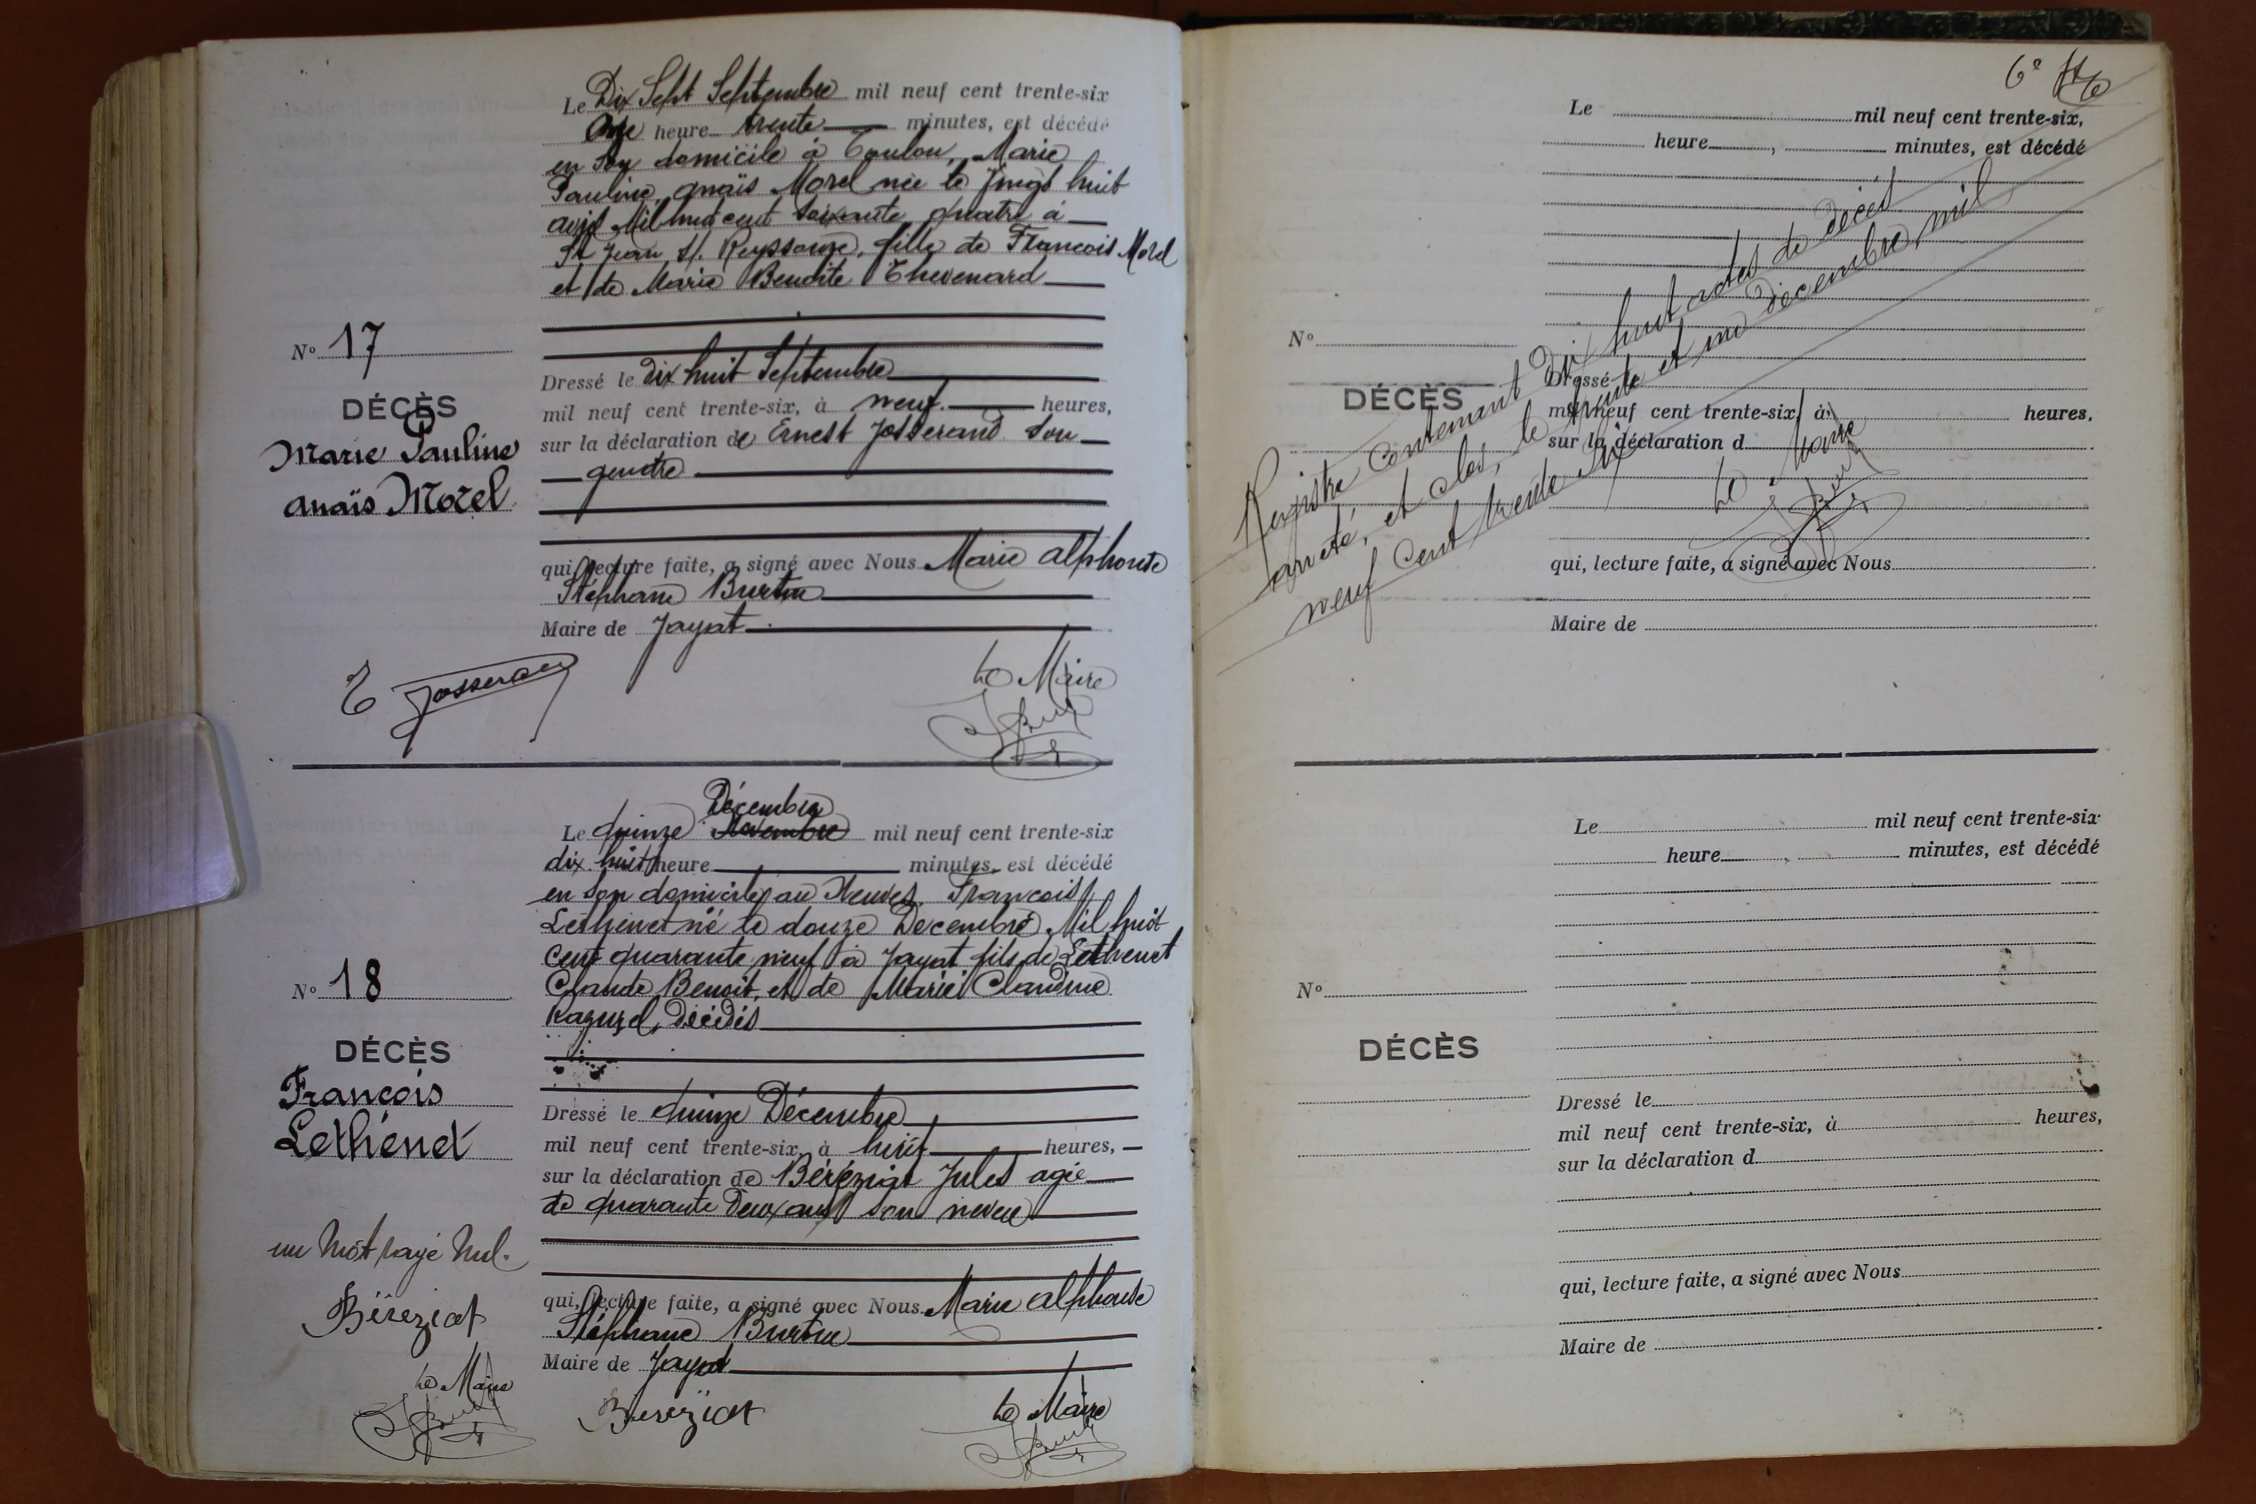 Le Dix Sept Septembre mil neuf cent trente-six
onze heure trente minutes, est décédé
en son domicile à Toulon, Marie
Pauline, anaïs Morel née le vingt huit
Mil huit cent soixante quatre à
St Jean s/. Reyssouze, fille de Francois Morel
et de Marie Benoite Thevenard
N° 17
DÉCÈS
Marie Pauline
anaïs Morel
Dressé le dix huit Septembre
mil neuf cent trente-six, à neuf heures,
sur la déclaration de Ernest Josserand son
gendre
qui, lecture faite, a signé avec Nous Marie alphonse
Stéphane Burtin
Maire de Jayat
E Josserand
Le Maire
Décembre
Le quinze Novembre mil neuf cent trente-six
dix huit heure minutes, est décédé
en son domicile au Francois
Lethenet né le douze Decembre Mil huit
Cent quarante neuf à Jayat fils de Lethenet
Claude Benoit, et de Marie Claudine
décédés
N° 18
DÉCÈS
François
Lethénet
Dressé le quinze Décembre
mil neuf cent trente-six, à huit heures,
sur la déclaration de Béréziat Jules agée
de quarante Deux ans son neveu
qui, lecture faite, a signé avec Nous Marie alphonse
Stéphane Burtin
Maire de Jayat
un Mot rayé Nul.
Béreziat
Le Maire
Béréziat
Le Maire
6e
Le mil neuf cent trente-six,
heure , minutes, est décédé
N°
DÉCÈS
Dressé le
mil neuf cent trente-six, à heures,
sur la déclaration d
qui, lecture faite, a signé avec Nous
Maire de
Registre Contenant Dix huit actes de décès
arreté, et clos, le trente et un décembre, mil
neuf Cent trente Six
Le Maire
Le mil neuf cent trente-six
heure , minutes, est décédé
N°
DÉCÈS
Dressé le
mil neuf cent trente-six, à heures,
sur la déclaration d
qui, lecture faite, a signé avec Nous
Maire de